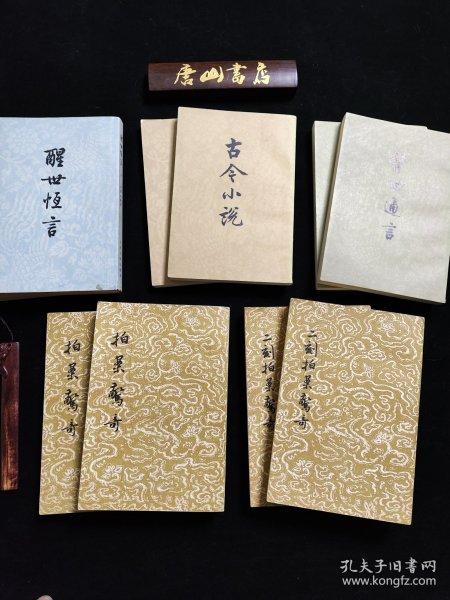 唐山書店
醒世恆言
古今小説
警世通言
拍案驚奇
拍案驚奇
二刻拍案驚奇
二刻拍案驚奇
孔夫子旧书网
www.kongfz.com